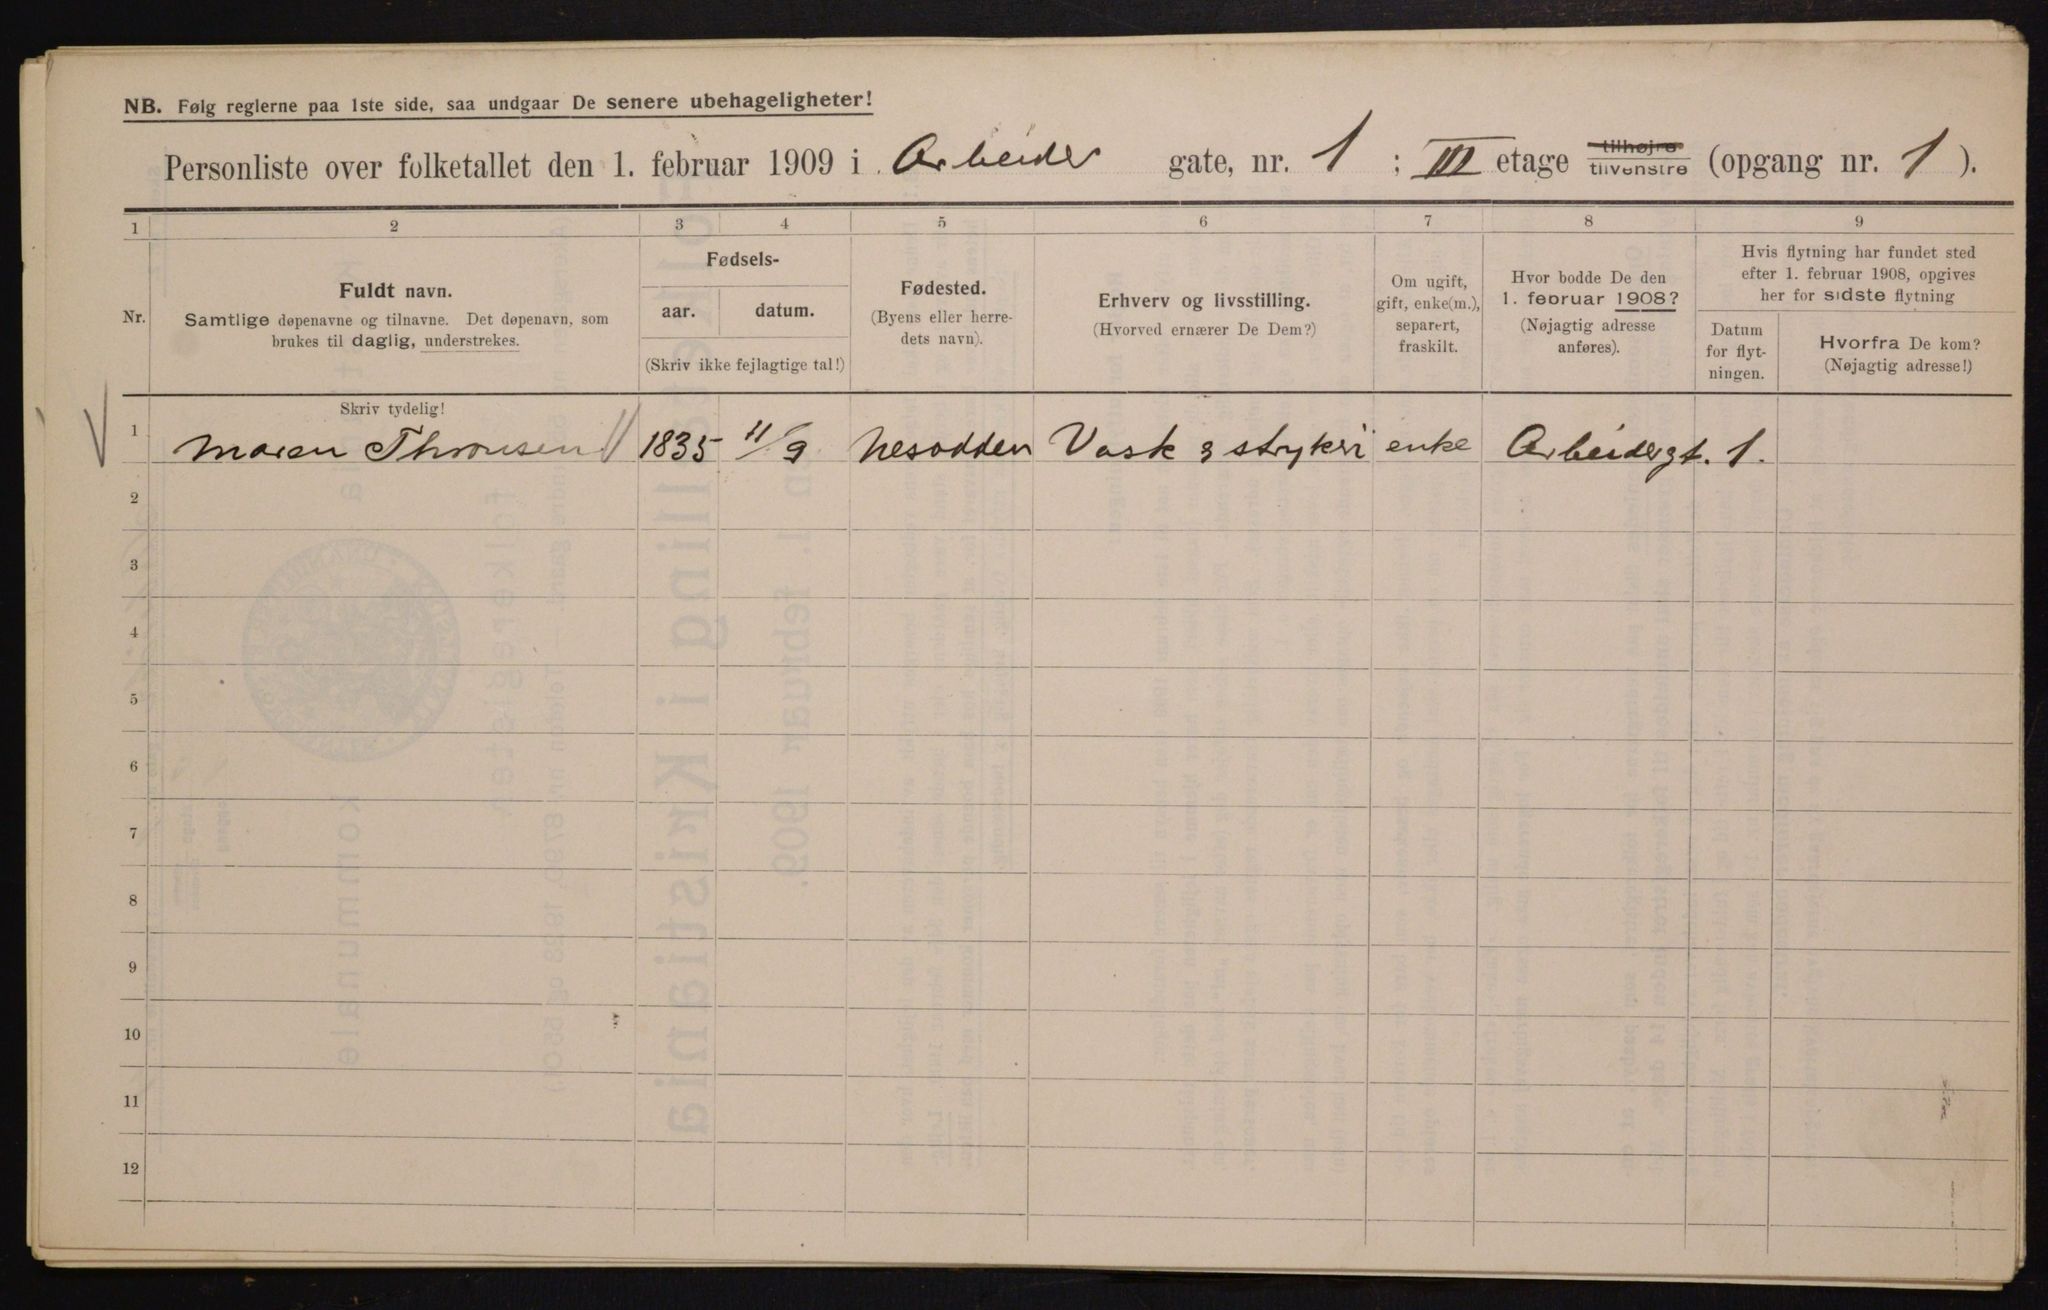 NB. Følg reglerne paa 1ste side, saa undgaar De senere ubehageligheter!
Personliste over folketallet den 1. februar 1909 i Arbeider gate, nr. 1 ; III etage tilhøjre tilvenstre (opgang nr. 1 ).
1 2 3 4 5 6 7 8 9
Nr.
Fuldt navn.
Samtlige døpenavne og tilnavne. Det døpenavn, som
brukes til daglig, understrekes.
Fødsels-
aar. datum.
(Skriv ikke fejlagtige tal!)
Fødested.
(Byens eller herre-
dets navn).
Erhverv og livsstilling.
(Hvorved ernærer De Dem?)
Om ugift,
gift, enke(m.),
separert,
fraskilt.
Hvor bodde De den
1. februar 1908?
(Nøjagtig adresse
anføres).
Hvis flytning har fundet sted
efter 1. februar 1908, opgives
her for sidste flytning
Datum
for flyt-
ningen.
Hvorfra De kom?
(Nøjagtig adresse!)
Skriv tydelig!
1 Maren Thronsen 1835 11/9 Nesodden Vask & strykeri enke Arbeidergt. 1.
2
3
4
5
6
7
8
9
10
11
12